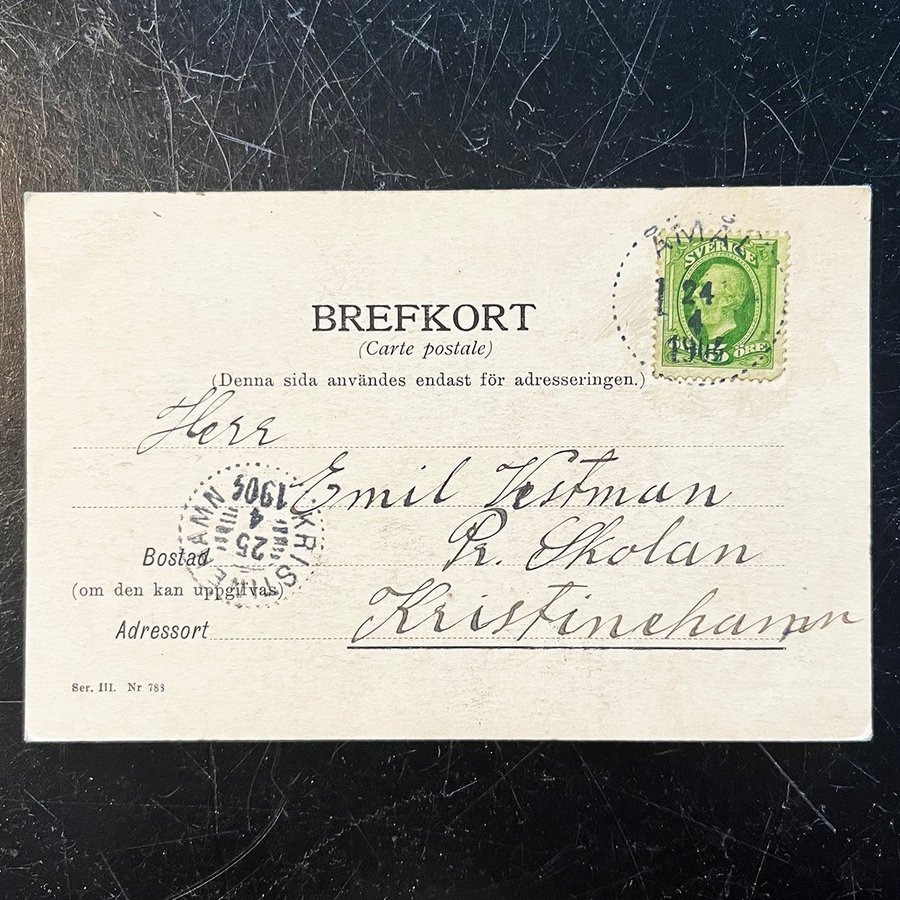 BREFKORT
(Carte postale)
(Denna sida användes endast för adresseringen.)
SVERIGE
24
4
ÖRE
Herr
Emil Vestman
Pr. Skolan
Bostad
(om den kan uppgifvas)
Kristinehamn
Adressort
KRISTINEHAMN
25
4
Ser. III. Nr 788